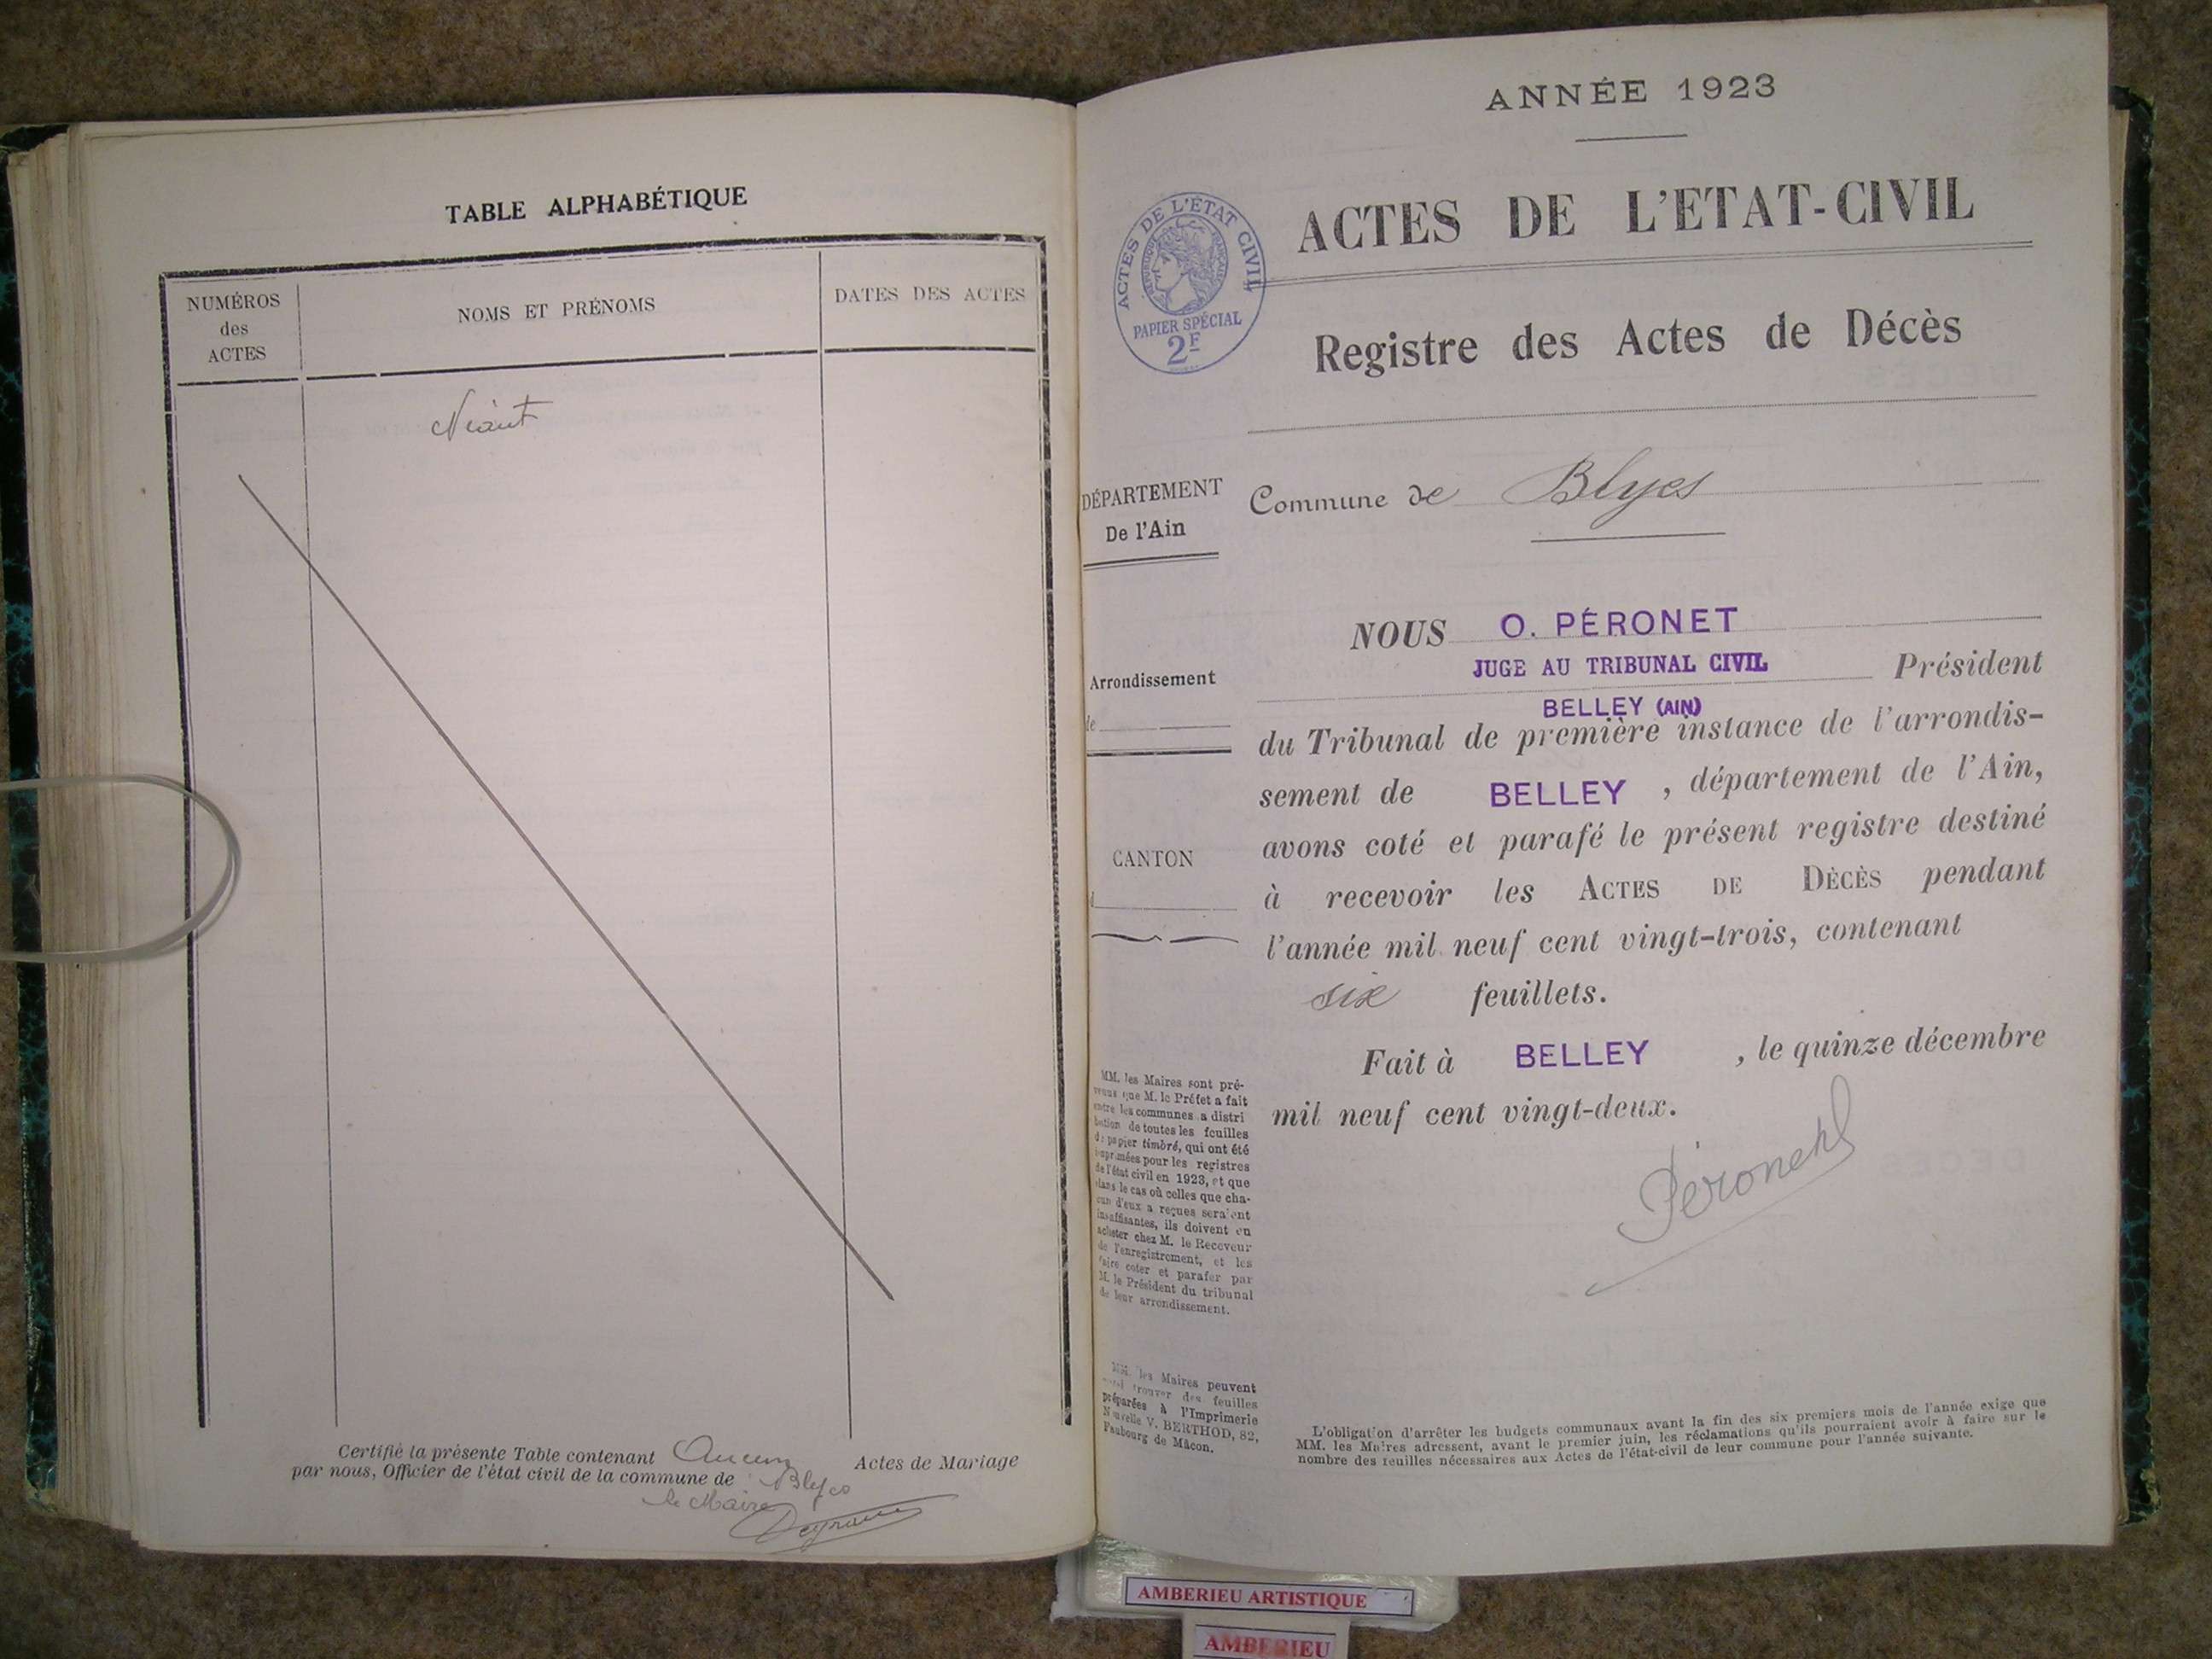 TABLE ALPHABÉTIQUE
NUMÉROS
des
ACTES
NOMS ET PRÉNOMS
DATES DES ACTES
Néant
Certifié la présente Table contenant Aucun Actes de Mariage
par nous, Officier de l'état civil de la commune de Blyes
le Maire
ANNÉE 1923
ACTES DE L'ETAT-CIVIL
ACTES DE L'ÉTAT CIVIL
RÉPUBLIQUE FRANÇAISE
PAPIER SPÉCIAL
2F
Registre des Actes de Décès
DÉPARTEMENT
De l'Ain
Commune de Blyes
Arrondissement
de
CANTON
d
NOUS O. PÉRONET
JUGE AU TRIBUNAL CIVIL Président
BELLEY (AIN)
du Tribunal de première instance de l'arrondis-
sement de BELLEY , département de l'Ain,
avons coté et parafé le présent registre destiné
à recevoir les ACTES DE DÉCÈS pendant
l'année mil neuf cent vingt-trois, contenant
six feuillets.
Fait à BELLEY , le quinze décembre
mil neuf cent vingt-deux.
Péronet
MM. les Maires sont pré-
venus que M. le Préfet a fait
entre les communes a distri
bution de toutes les feuilles
de papier timbré, qui ont été
imprimées pour les registres
de l'état civil en 1923, et que
dans le cas où celles que cha-
cun d'eux a reçues seraient
insuffisantes, ils doivent en
acheter chez M. le Receveur
de l'enregistrement, et les
faire coter et parafer par
M. le Président du tribunal
de leur arrondissement.
MM. les Maires peuvent
trouver des feuilles
préparées à l'Imprimerie
Nouvelle V. BERTHOD, 82,
Faubourg de Mâcon.
L'obligation d'arrêter les budgets communaux avant la fin des six premiers mois de l'année exige que
MM. les Maires adressent, avant le premier juin, les réclamations qu'ils pourraient avoir à faire sur le
nombre des feuilles nécessaires aux Actes de l'état-civil de leur commune pour l'année suivante.
AMBERIEU ARTISTIQUE
AMBERIEU